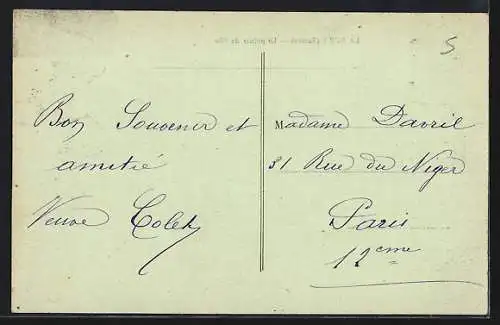 5
Bon Souvenir et
amitié
Veuve
Madame Davril
31 Rue du Niger
Paris
12eme